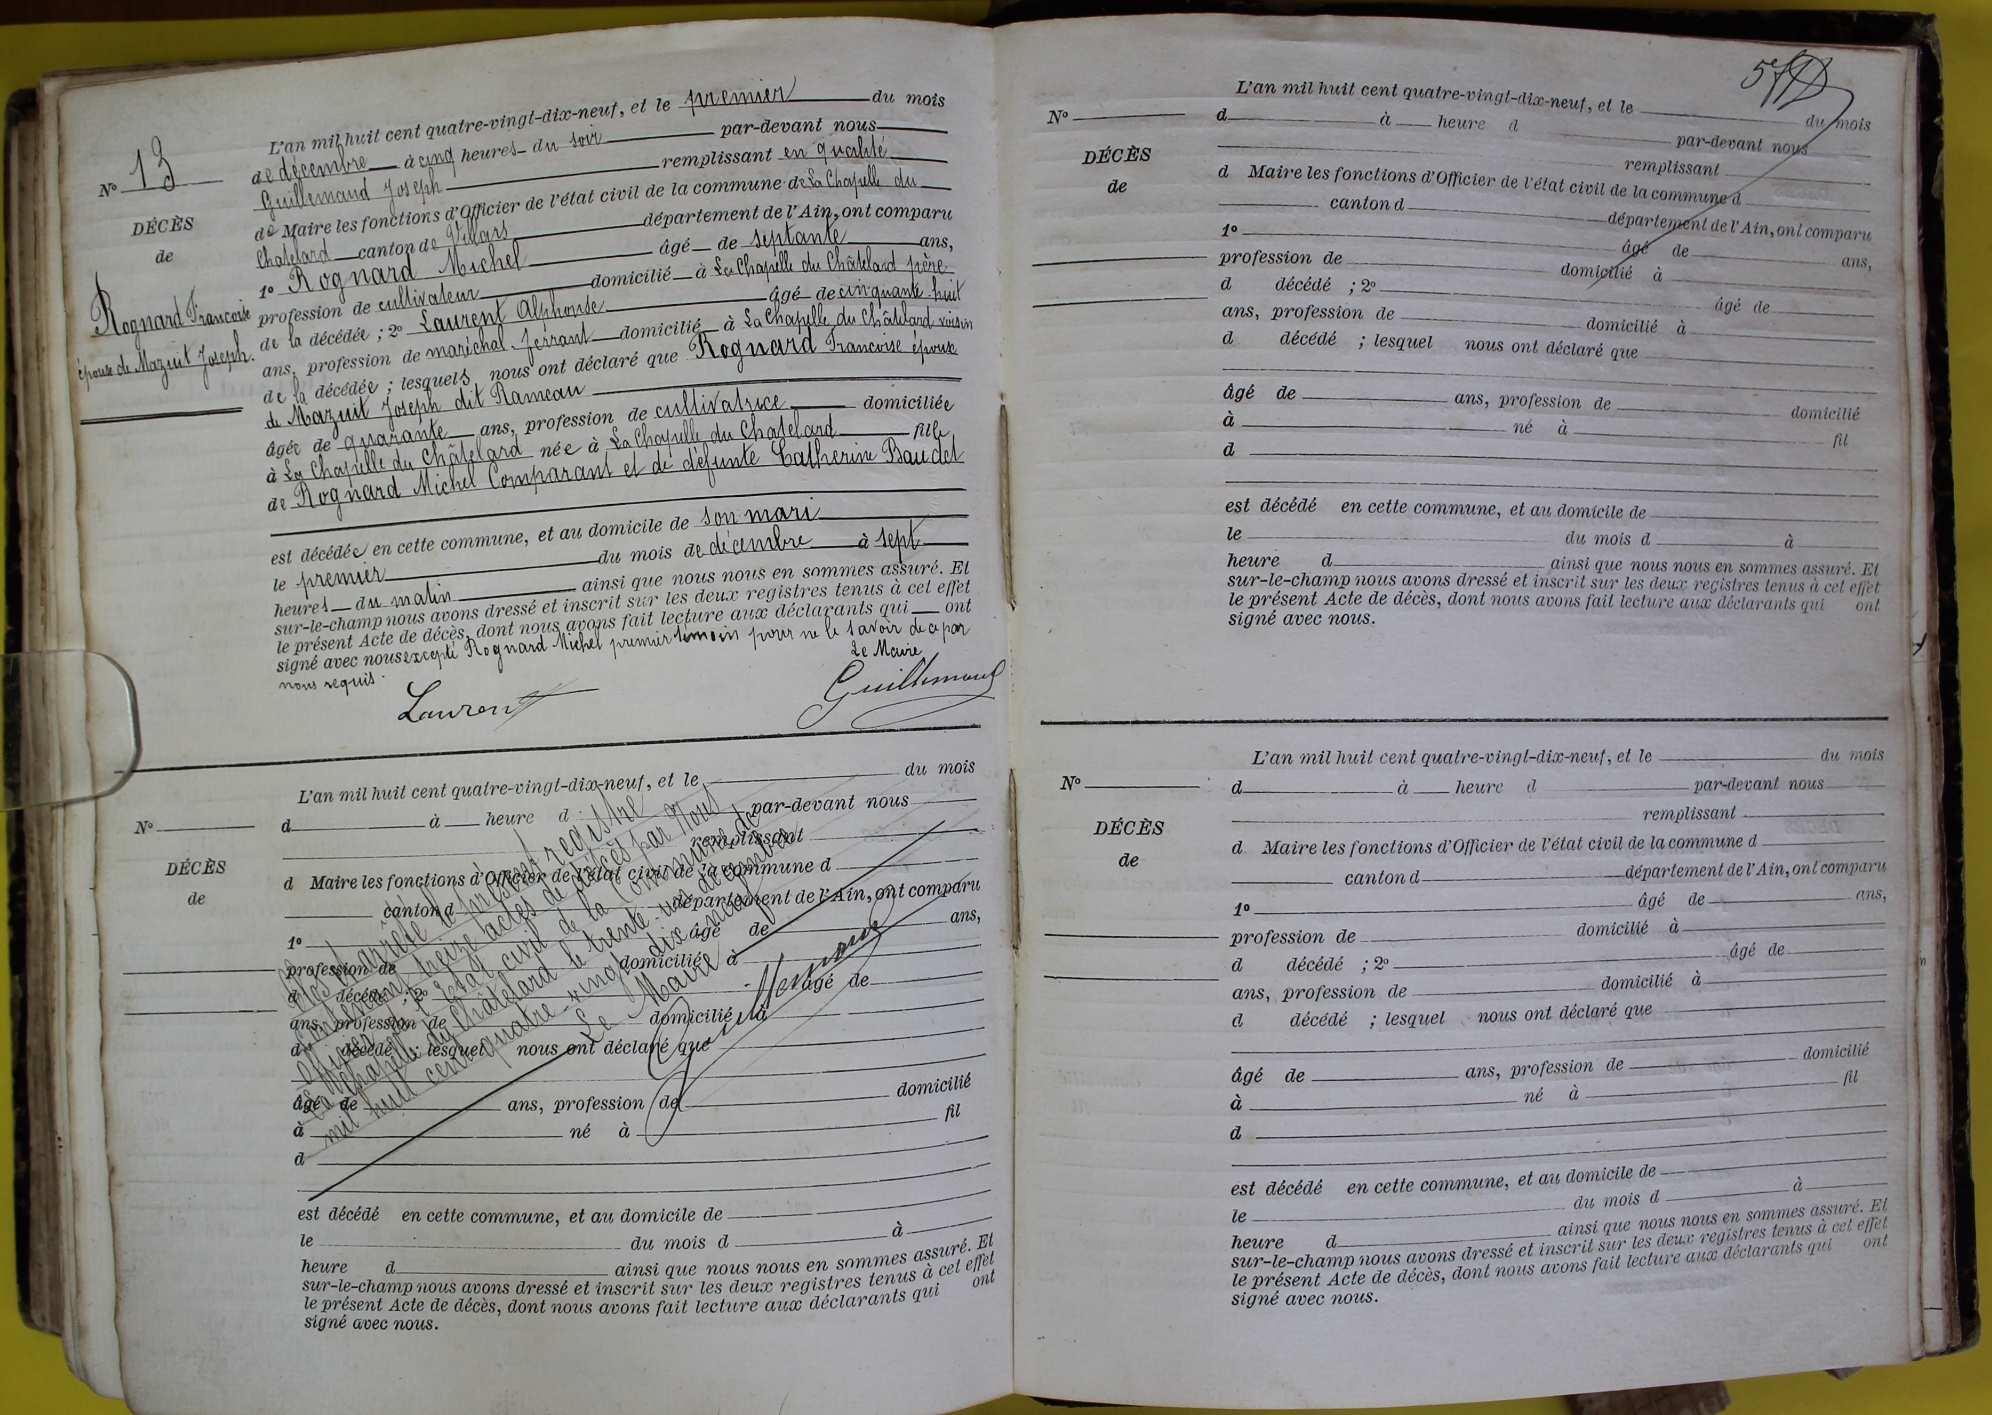 N° 13
DÉCÈS
de
Rognard Francoise
épouse de Mazuit Joseph.
L'an mil huit cent quatre-vingt-dix-neuf, et le premier du mois
de décembre à cinq heures du soir par-devant nous
Guillemaud Joseph remplissant en qualité
de Maire les fonctions d'Officier de l'état civil de la commune de La Chapelle du
Chatelard canton de Villars département de l'Ain, ont comparu
1° Rognard Michel âgé de septante ans,
profession de cultivateur domicilié à La Chapelle du Châtelard père
de la décédée ; 2° Laurent Alphonse âgé de cinquante huit
ans, profession de maréchal ferrant domicilié à La Chapelle du Châtelard voisin
de la décédée ; lesquels nous ont déclaré que Rognard Francoise épouse
de Mazuit Joseph dit Rameau
âgée de quarante ans, profession de cultivatrice domiciliée
à La Chapelle du Châtelard née à La Chapelle du Chatelard fille
de Rognard Michel Comparant et de défunte Catherine Baudet
est décédée en cette commune, et au domicile de son mari
le premier du mois de décembre à sept
heures du matin ainsi que nous nous en sommes assuré. Et
sur-le-champ nous avons dressé et inscrit sur les deux registres tenus à cet effet
le présent Acte de décès, dont nous avons fait lecture aux déclarants qui ont
signé avec nous excepté Rognard Michel premier témoin pour ne le savoir de ce par
nous requis.
Le Maire
Laurent
Guillemaud
N°
DÉCÈS
de
L'an mil huit cent quatre-vingt-dix-neuf, et le du mois
d à heure d par-devant nous
remplissant
d Maire les fonctions d'Officier de l'état civil de la commune d
canton d département de l'Ain, ont comparu
1° âgé de ans,
profession de domicilié à
d décédé ; 2° âgé de
ans, profession de domicilié à
d décédé lesquel nous ont déclaré que
âgé de ans, profession de domicilié
à né à fil
d
est décédé en cette commune, et au domicile de
le du mois d à
heure d ainsi que nous nous en sommes assuré. Et
sur-le-champ nous avons dressé et inscrit sur les deux registres tenus à cet effet
le présent Acte de décès, dont nous avons fait lecture aux déclarants qui ont
signé avec nous.
arrêté le présent registre
contenant treize actes de décès par Nous
officier de l'état civil de la Commune de
La Chapelle du Châtelard le trente-un décembre
mil huit cent quatre-vingt-dix neuf
Le Maire
Guillemaud
57
N°
DÉCÈS
de
L'an mil huit cent quatre-vingt-dix-neuf, et le du mois
d à heure d par-devant nous
remplissant
d Maire les fonctions d'Officier de l'état civil de la commune d
canton d département de l'Ain, ont comparu
1° âgé de ans,
profession de domicilié à
d décédé ; 2° âgé de
ans, profession de domicilié à
d décédé ; lesquel nous ont déclaré que
âgé de ans, profession de domicilié
à né à fil
d
est décédé en cette commune, et au domicile de
le du mois d à
heure d ainsi que nous nous en sommes assuré. Et
sur-le-champ nous avons dressé et inscrit sur les deux registres tenus à cet effet
le présent Acte de décès, dont nous avons fait lecture aux déclarants qui ont
signé avec nous.
N°
DÉCÈS
de
L'an mil huit cent quatre-vingt-dix-neuf, et le du mois
d à heure d par-devant nous
remplissant
d Maire les fonctions d'Officier de l'état civil de la commune d
canton d département de l'Ain, ont comparu
1° âgé de ans,
profession de domicilié à
d décédé ; 2° âgé de
ans, profession de domicilié à
d décédé ; lesquel nous ont déclaré que
âgé de ans, profession de domicilié
à né à fil
d
est décédé en cette commune, et au domicile de
le du mois d à
heure d ainsi que nous nous en sommes assuré. Et
sur-le-champ nous avons dressé et inscrit sur les deux registres tenus à cet effet
le présent Acte de décès, dont nous avons fait lecture aux déclarants qui ont
signé avec nous.